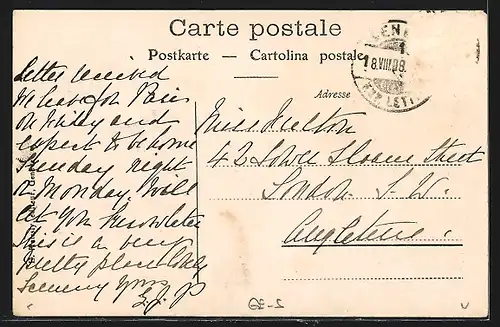 Carte postale
Postkarte — Cartolina postale
Adresse
18.VIII.08.
letter received
We leave for Paris
on Friday and
expect to be home
Sunday night
or Monday. Will
let you know later
This is a very
pretty place lovely
Scenery Yours
Miss Hutton
42 Lower Sloane Street
London S. W.
Angleterre